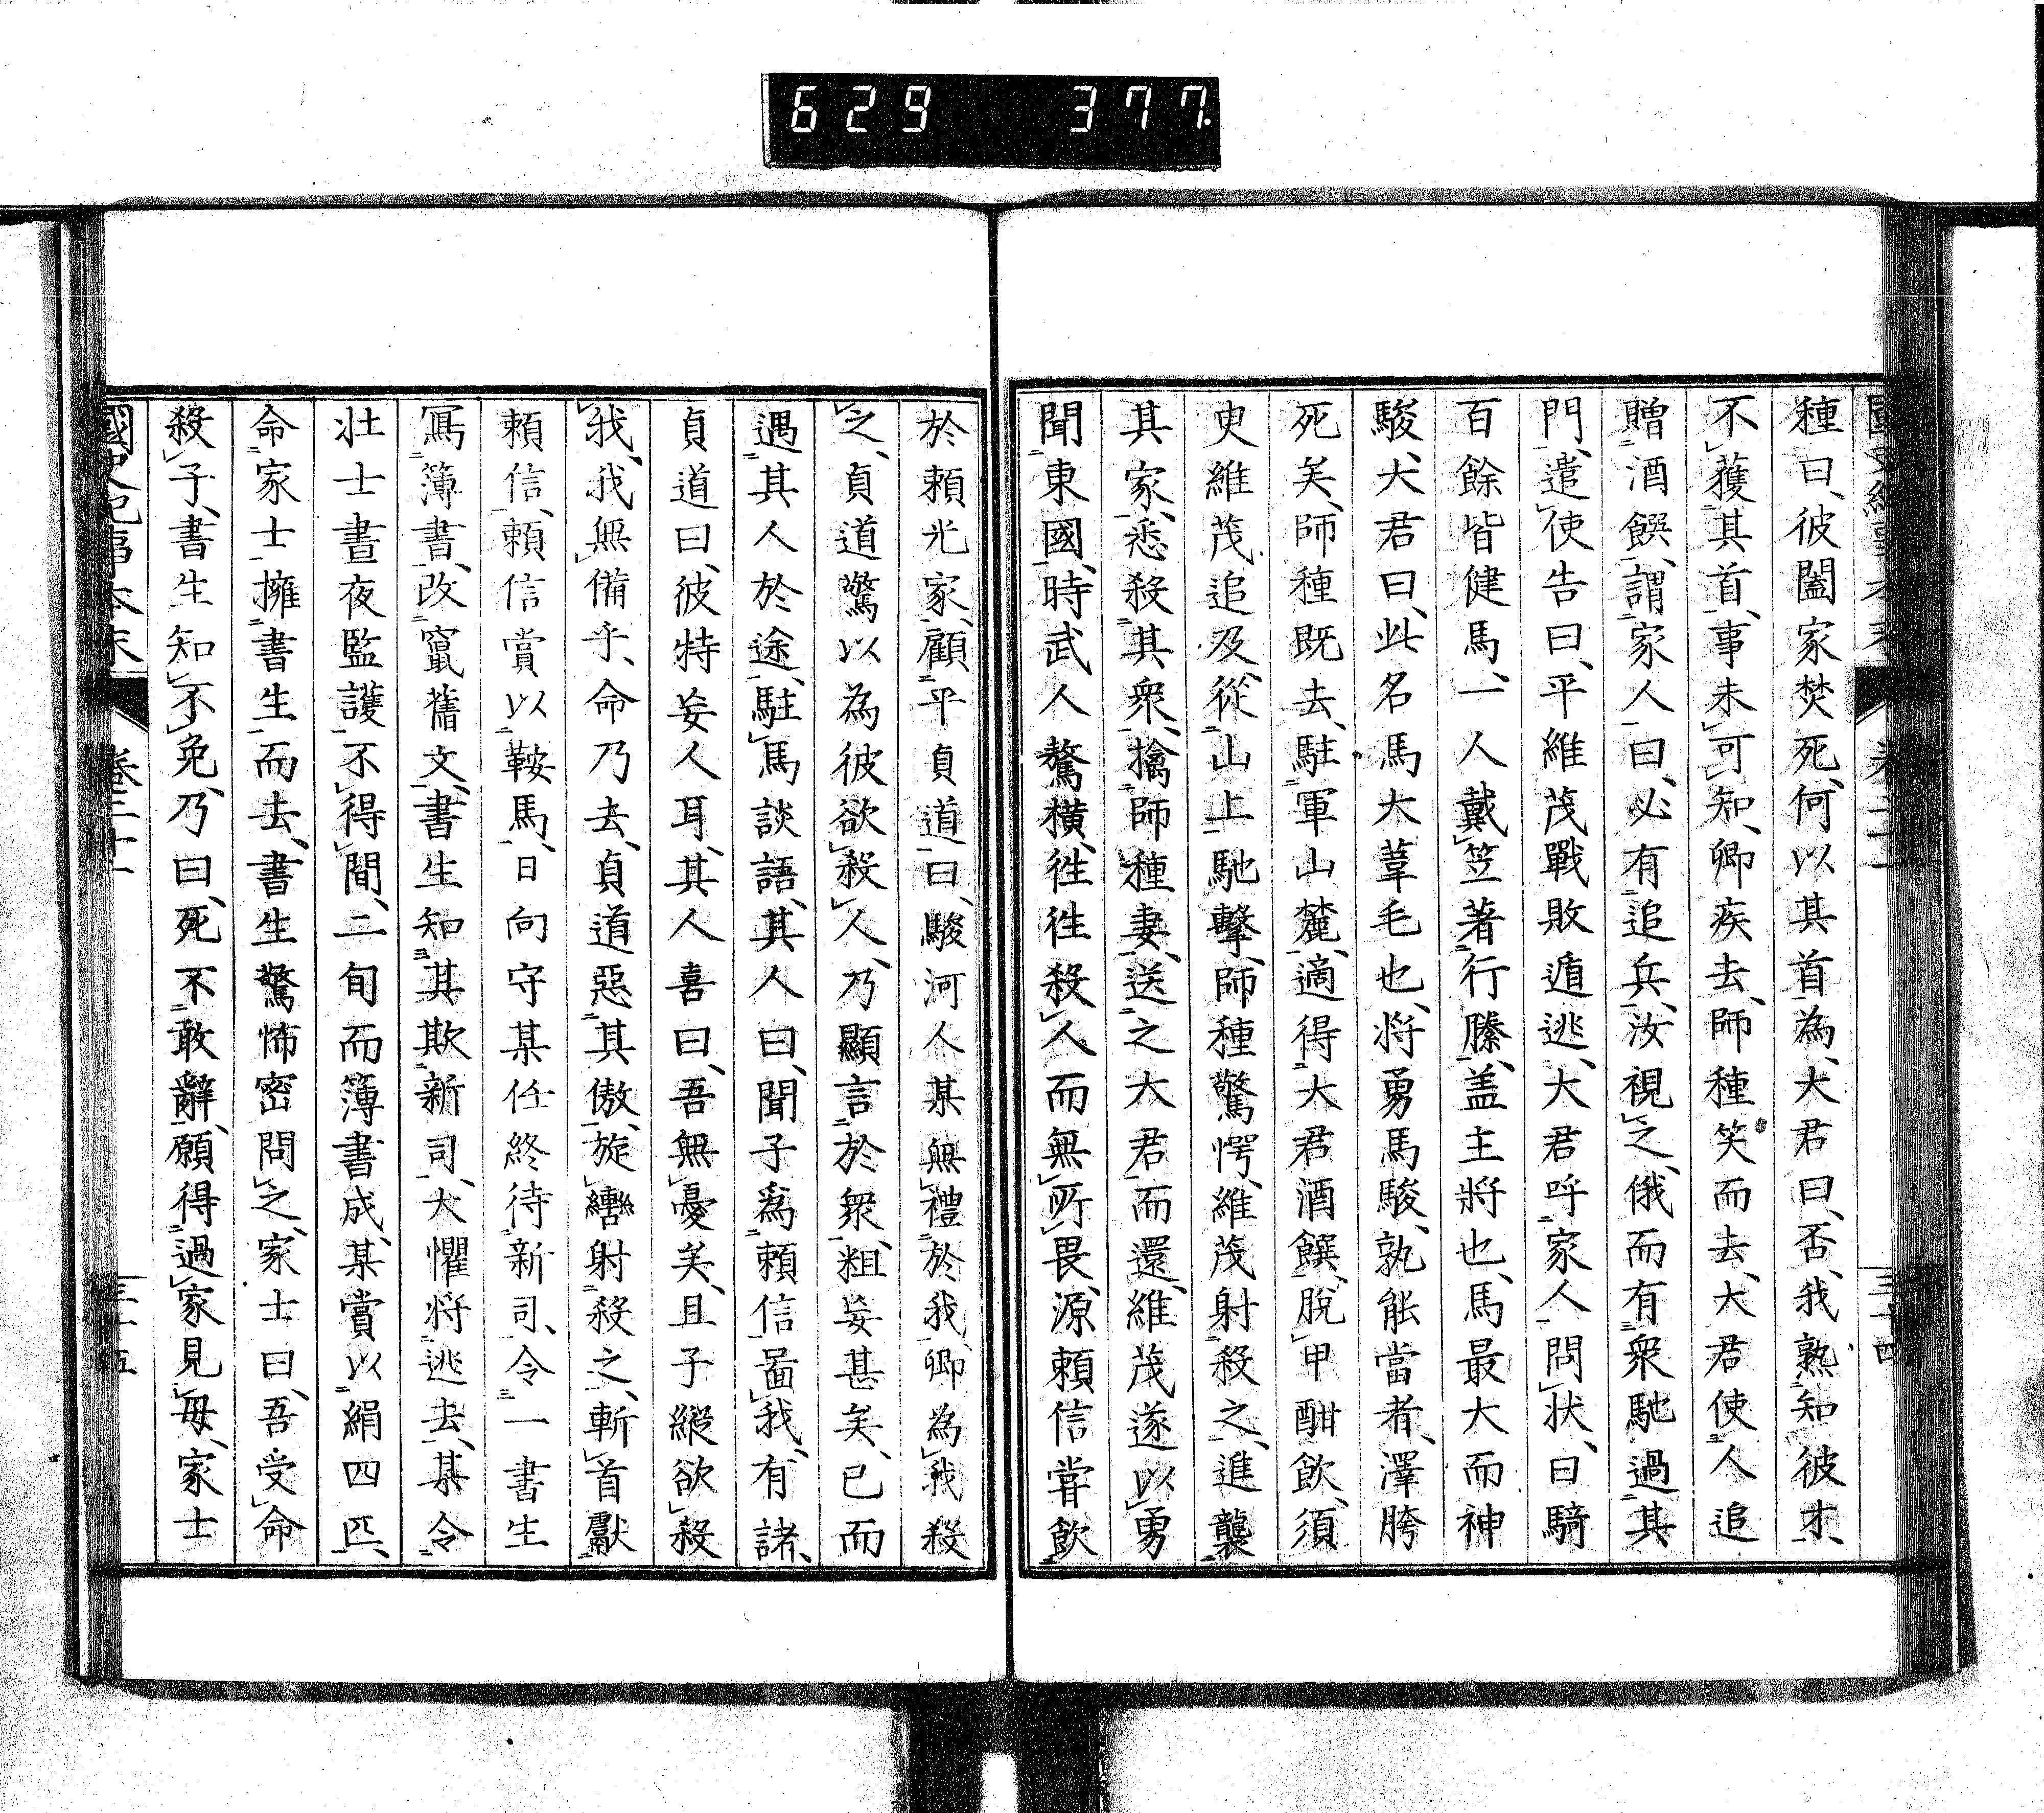 629 377
種曰、彼闔家焚死、何以其首為、大君曰、否、我熟知彼才、
不獲其首、事未可知、卿疾去、師種笑而去、大君使人追
贈酒饌、謂家人曰、必有追兵、汝視之、俄而有衆馳過其
門、遣使告曰、平維茂戰敗遁逃、大君呼家人問状、曰騎
百餘皆健馬、一人戴笠著行縢、盖主将也、馬最大而神
駿、大君曰、此名馬大葦毛也、将勇馬駿、孰能當者、澤胯
死矣、師種既去、駐軍山麓、適得大君酒饌、脫甲酣飲、須
臾維茂追及、從山上馳擊、師種驚愕、維茂射殺之、進襲
其家、悉殺其衆、擒師種妻、送之大君而還、維茂遂以勇
聞東國、時武人驁横、徃徃殺人而無所畏、源頼信嘗飲
三十四
於頼光家、顧平貞道曰、駿河人某無禮於我、卿為我殺
之、貞道驚以為彼欲殺人、乃顯言於衆、粗妄甚矣、已而
遇其人於途、駐馬談語、其人曰、聞子爲頼信啚我、有諸、
貞道曰、彼特妄人耳、其人喜曰、吾無憂矣、且子縦欲殺
我、我無備乎、命乃去、貞道惡其傲、旋轡射殺之、斬首獻
頼信、頼信賞以鞍馬、日向守某任終待新司、令一書生
寫簿書、改竄舊文、書生知其欺新司、大懼将逃去、某令
壮士晝夜監護、不得間、二旬而簿書成、某賞以絹四匹、
命家士擁書生而去、書生驚怖密問之、家士曰、吾受命
殺子、書生知不免、乃曰、死不敢辭、願得過家見母、家士
國史紀事本末
卷二十一
三十五